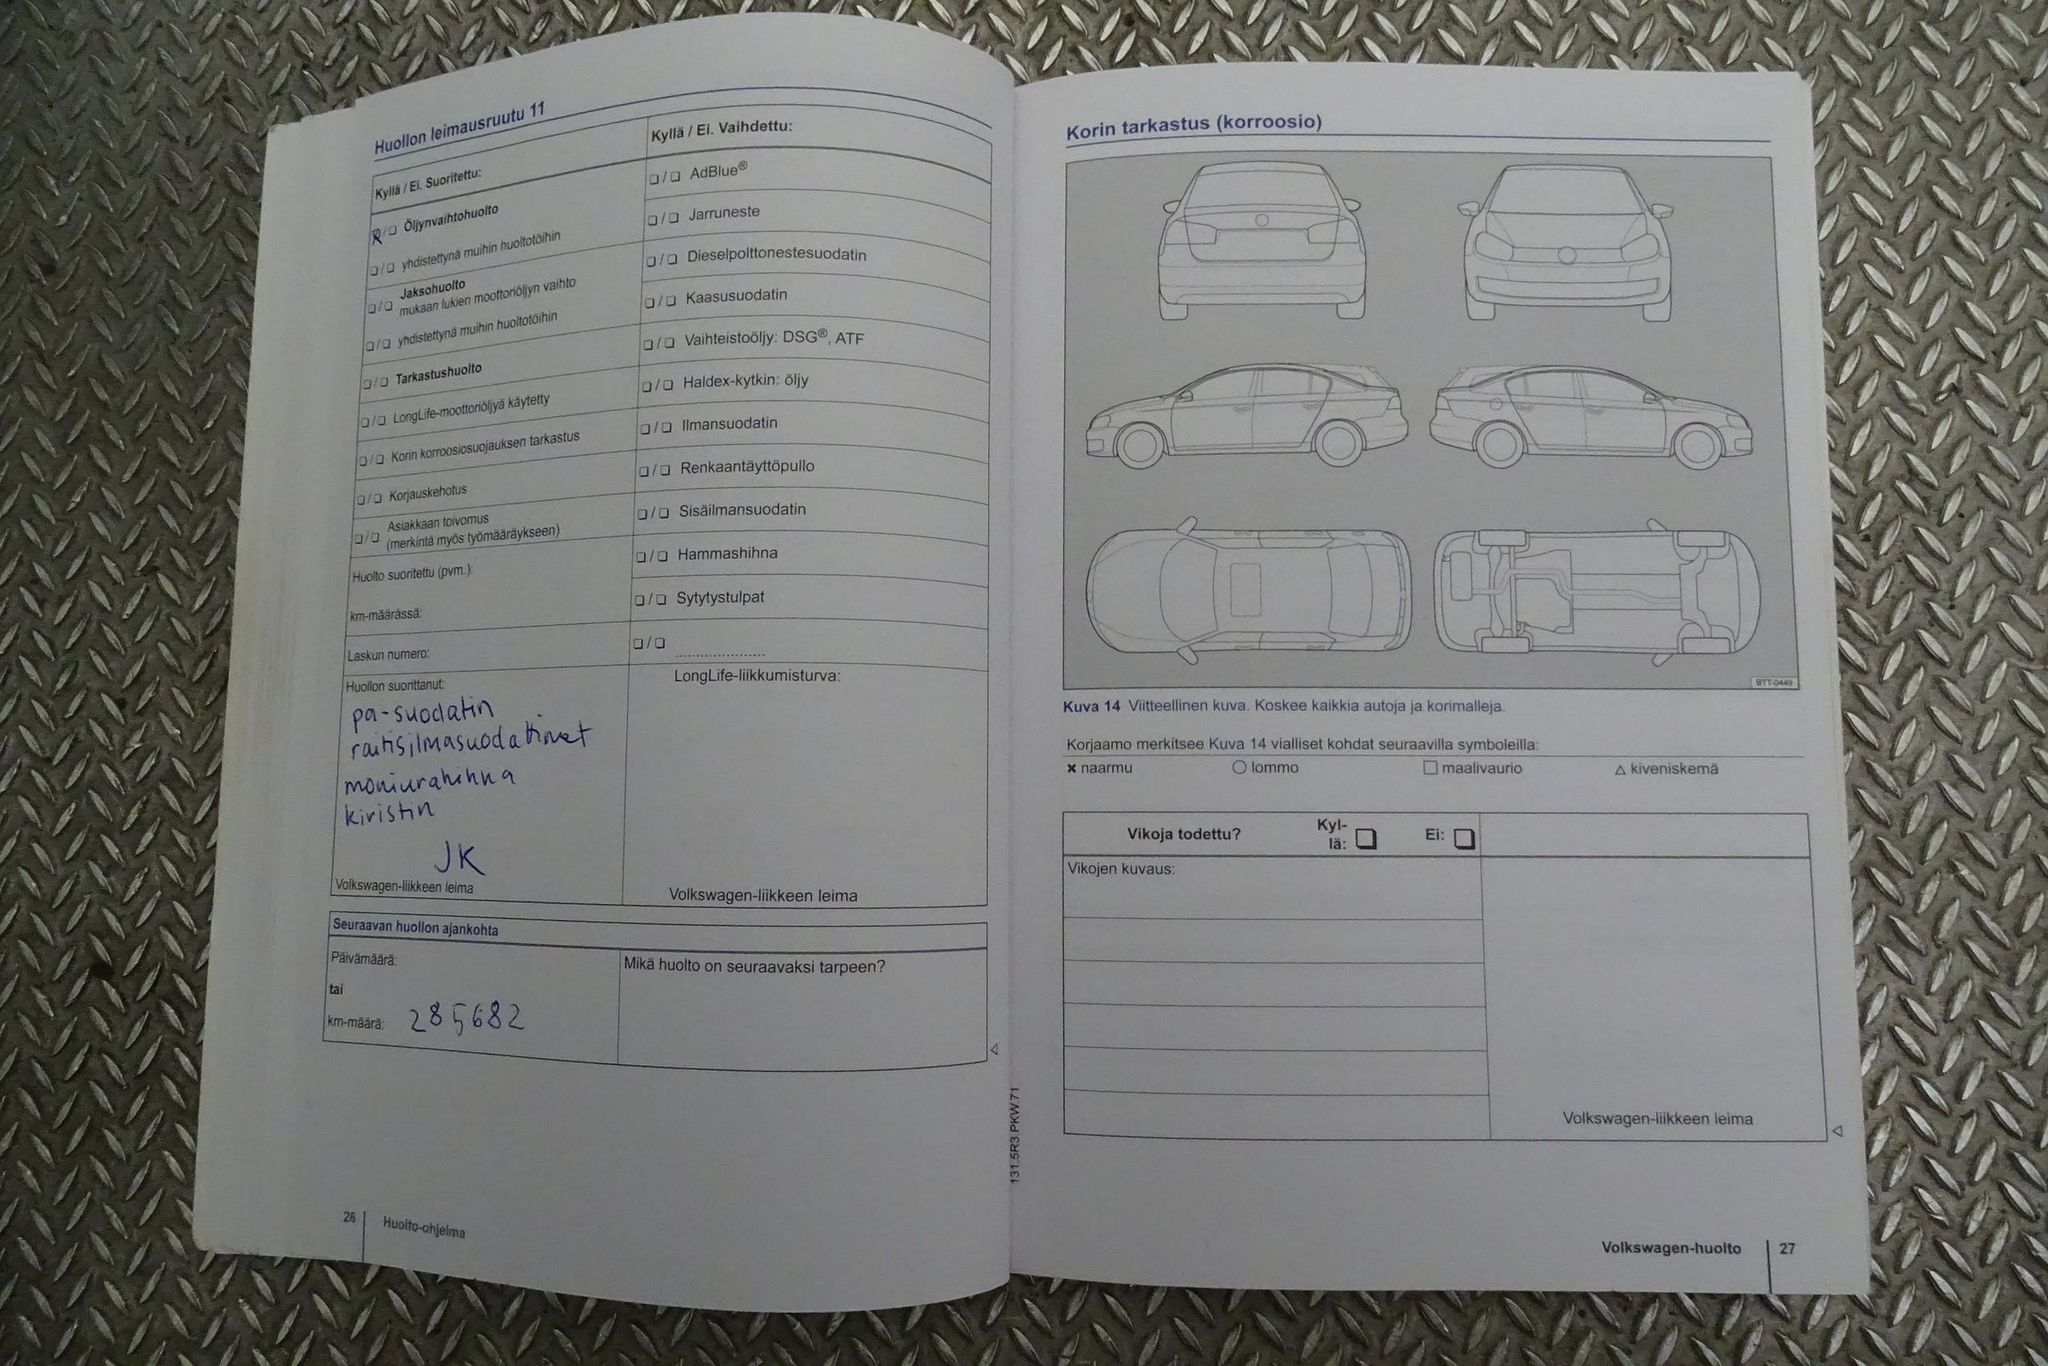 Huollon leimausruutu 11
Kyllä / Ei. Suoritettu:
Öljynvaihtohuolto
yhdistettynä muihin huoltotöihin
Jaksohuolto
mukaan lukien moottoriöljyn vaihto
yhdistettynä muihin huoltotöihin
Tarkastushuolto
LongLife-moottoriöljyä käytetty
Korin korroosiosuojauksen tarkastus
Korjauskehotus
Asiakkaan toivomus
(merkintä myös työmääräykseen)
Huolto suoritettu (pvm.):
km-määrässä:
Laskun numero:
Huollon suorittanut:
pa-suodatin
raitisilmasuodattimet
moniurahihna
kiristin
JK
Volkswagen-liikkeen leima
Kyllä / Ei. Vaihdettu:
AdBlue®
Jarruneste
Dieselpolttonestesuodatin
Kaasusuodatin
Vaihteistoöljy: DSG®, ATF
Haldex-kytkin: öljy
Ilmansuodatin
Renkaantäyttöpullo
Sisäilmansuodatin
Hammashihna
Sytytystulpat
LongLife-liikkumisturva:
Volkswagen-liikkeen leima
Seuraavan huollon ajankohta
Päivämäärä:
tai
km-määrä: 285682
Mikä huolto on seuraavaksi tarpeen?
131.5R3.PKW.71
26 Huolto-ohjelma
Korin tarkastus (korroosio)
BTT-0449
Kuva 14 Viitteellinen kuva. Koskee kaikkia autoja ja korimalleja.
Korjaamo merkitsee Kuva 14 vialliset kohdat seuraavilla symboleilla:
naarmu lommo maalivaurio kiveniskemä
Vikoja todettu? Kyl-
lä: Ei:
Vikojen kuvaus:
Volkswagen-liikkeen leima
Volkswagen-huolto 27